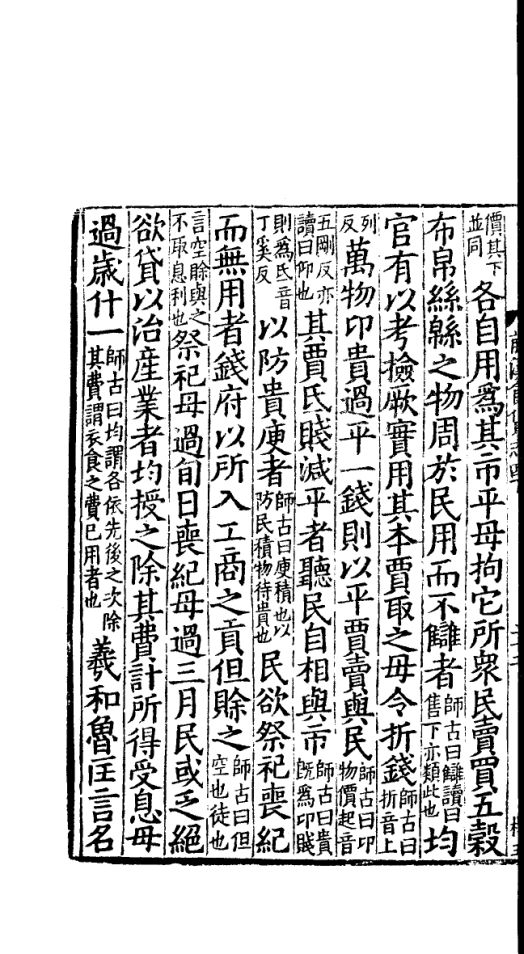 價其下並同各自用爲其市平毋拘它所衆民賣買五穀
布帛絲緜之物周於民用而不讎者師古曰讎讀曰售下亦類此也均
官有以考檢厥實用其本賈取之毋令折錢師古曰折音上
列反萬物卬貴過平一錢則以平賈賣與民師古曰卬物價起音
五剛反亦讀曰仰也其賈氐賤減平者聽民自相與市師古曰貴旣爲卬賤
則爲氐音丁奚反以防貴庾者師古曰庾積也以防民積物待貴也民欲祭祀喪紀
而無用者錢府以所入工商之貢但賖之師古曰但空也徒也
言空賖與之不取息利也祭祀毋過旬日喪紀毋過三月民或乏絕
欲貸以治産業者均授之除其費計所得受息毋
過歲什一師古曰均謂各依先後之次除其費謂衣食之費已用者也羲和魯匡言名